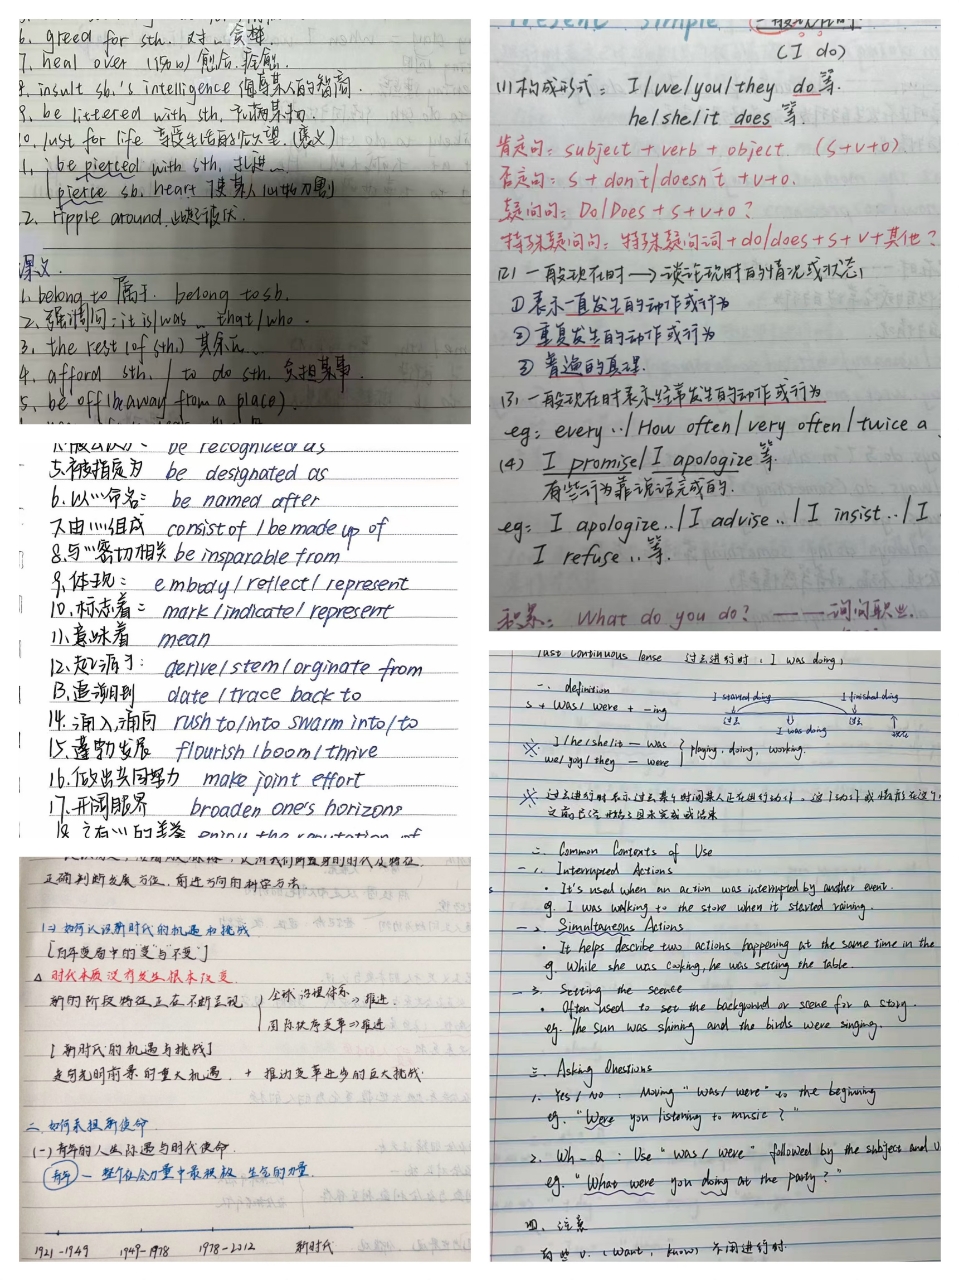 6. greed for sth. 对…贪婪
7. heal over (伤口) 愈合，痊愈.
insult sb.'s intelligence 侮辱某人的智商
9. be littered with sth.
10. lust for life 享受生活的欲望 (褒义)
1. be pierced with sth. 扎进…
pierce sb. heart 使某人心如刀割
2. ripple around
课文.
1. belong to 属于. belong to sb.
2. 强调句: it is/was … that/who.
3. the rest (of sth.) 其余…
4. afford sth. / to do sth. 负担某事.
5. be off (be away from a place).
be recognized as
5.被指定为 be designated as
6.以…命名: be named after
7.由…组成 consist of / be made up of
8.与…密切相关 be insparable from
9.体现: embody / reflect / represent
10.标志着: mark / indicate / represent
11.意味着 mean
12.起源于: derive / stem / orginate from
13.追溯到 date / trace back to
14.涌入,涌向 rush to/into swarm into/to
15.蓬勃发展 flourish / boom / thrive
16.做出共同努力 make joint effort
17.开阔眼界 broaden one's horizons
18. 享有…的美誉 enjoy the reputation of
正确判断发展方位、前进方向的科学方法
(一) 如何认识新时代的机遇和挑战
[百年变局中的"变"与"不变"]
△ 时代本质没有发生根本改变
新的阶段特征正在不断呈现
全球治理体系 ⇒ 推进
国际秩序变革 ⇒ 推进
[新时代的机遇与挑战]
走向光明前景的重大机遇 + 推动变革进步的巨大挑战.
二. 如何承担新使命
(一) 青年的人生际遇与时代使命.
青年 — 整个社会力量中最积极、生气的力量.
1921-1949 1949-1978 1978-2012 新时代
Present Simple 一般现在时
(I do)
(1)构成形式: I/we/you/they do 等.
he/she/it does 等.
肯定句: subject + verb + object. (S+V+O)
否定句: S + don't/doesn't + V+O.
疑问句: Do/Does + S+V+O?
特殊疑问句: 特殊疑问词+do/does+S+V+其他?
(2) 一般现在时 → 谈论现时的情况或状态,
①表示一直发生的动作或行为
②重复发生的动作或行为
③ 普遍的真理.
(3) 一般现在时表示经常发生的动作或行为
eg: every … / How often / very often / twice a
(4) I promise / I apologize 等.
有些行为靠说话完成的.
eg: I apologize.. / I advise .. / I insist .. / I
I refuse .. 等.
积累: What do you do? —— 询问职业.
Past Continuous Tense 过去进行时 (I was doing)
一. definition
S + was/were + -ing
I started doing I finished doing
过去 I was doing 过去 现在
※ I/he/she/it — was
we/you/they — were playing, doing, working.
※ 过去进行时表示过去某个时间某人正在进行动作, 这个动作或情形在这个
之前已经开始了但未完成或结束
二. Common Contexts of Use
1. Interrupted Actions
• It's used when an action was interrupted by another event.
eg. I was walking to the store when it started raining.
2. Simultaneous Actions
• It helps describe two actions happening at the same time in the
eg. While she was cooking, he was setting the table.
3. Setting the scence
• Often used to set the background or scene for a story.
eg. The sun was shining and the birds were singing.
三. Asking Questions
1. Yes / No : Moving "was/were" to the beginning
eg. "Were you listening to music?"
2. Wh-Q : Use "was / were" followed by the subject and v
eg. "What were you doing at the party?"
四. 注意
有些 v. (want, know) 不用进行时.